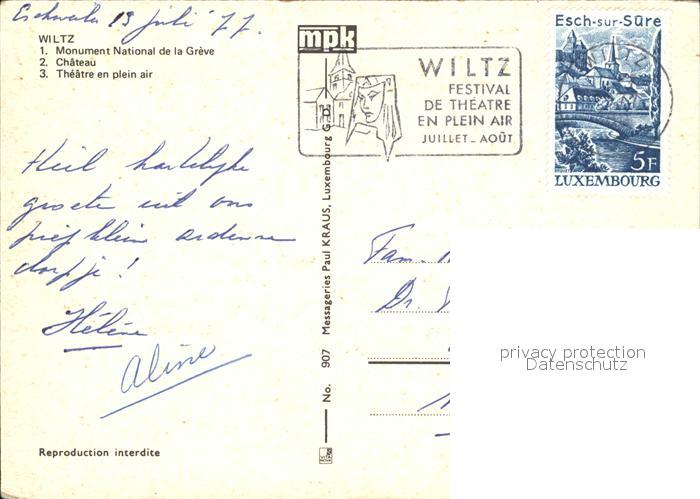 Eschweiler 13 juli 77.
WILTZ
1. Monument National de la Grève
2. Château
3. Théâtre en plein air
Heel hartelijke
groeten uit ons
piepklein ardenne
dorpje!
Hélène
Aline
Reproduction interdite
mpk
WILTZ
FESTIVAL
DE THÉATRE
EN PLEIN AIR
JUILLET_AOÛT
Esch-sur-Sûre
WILTZ
5F
LUXEMBOURG
No. 907 Messageries Paul KRAUS, Luxembourg G
Fam.
Dr.
privacy protection
Datenschutz